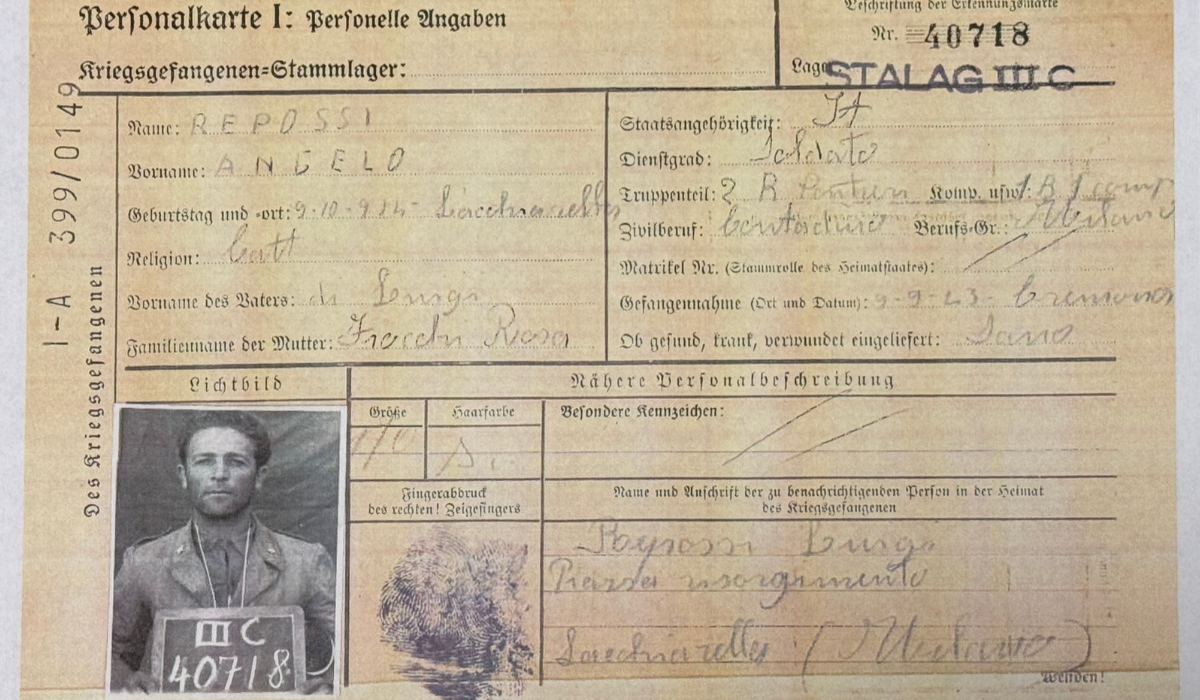 Personalkarte I: Personelle Angaben
Kriegsgefangenen-Stammlager:
Beschriftung der Erkennungsmarke
Nr. 40718
Lager STALAG III C
I-A 399/0149
Des Kriegsgefangenen
Name: REPOSSI
Vorname: ANGELO
Geburtstag und -ort: Lacchiarella
Religion: Catt
Vorname des Vaters: di Luigi
Familienname der Mutter: Rosa
Staatsangehörigkeit: It
Dienstgrad: Soldato
Truppenteil: 2 R Komp. usw.:
Zivilberuf: Contadino Berufs-Gr.: Milano
Matrikel Nr. (Stammrolle des Heimatstaates):
Gefangennahme (Ort und Datum): 9-9-43- Cremona
Ob gesund, krank, verwundet eingeliefert: Sano
Lichtbild
Nähere Personalbeschreibung
Größe
Haarfarbe
Besondere Kennzeichen:
170
Fingerabdruck
des rechten! Zeigefingers
Name und Anschrift der zu benachrichtigenden Person in der Heimat
des Kriegsgefangenen
Repossi Luigi
Piazza risorgimento
Lacchiarella (Milano)
Wenden!
III C
40718